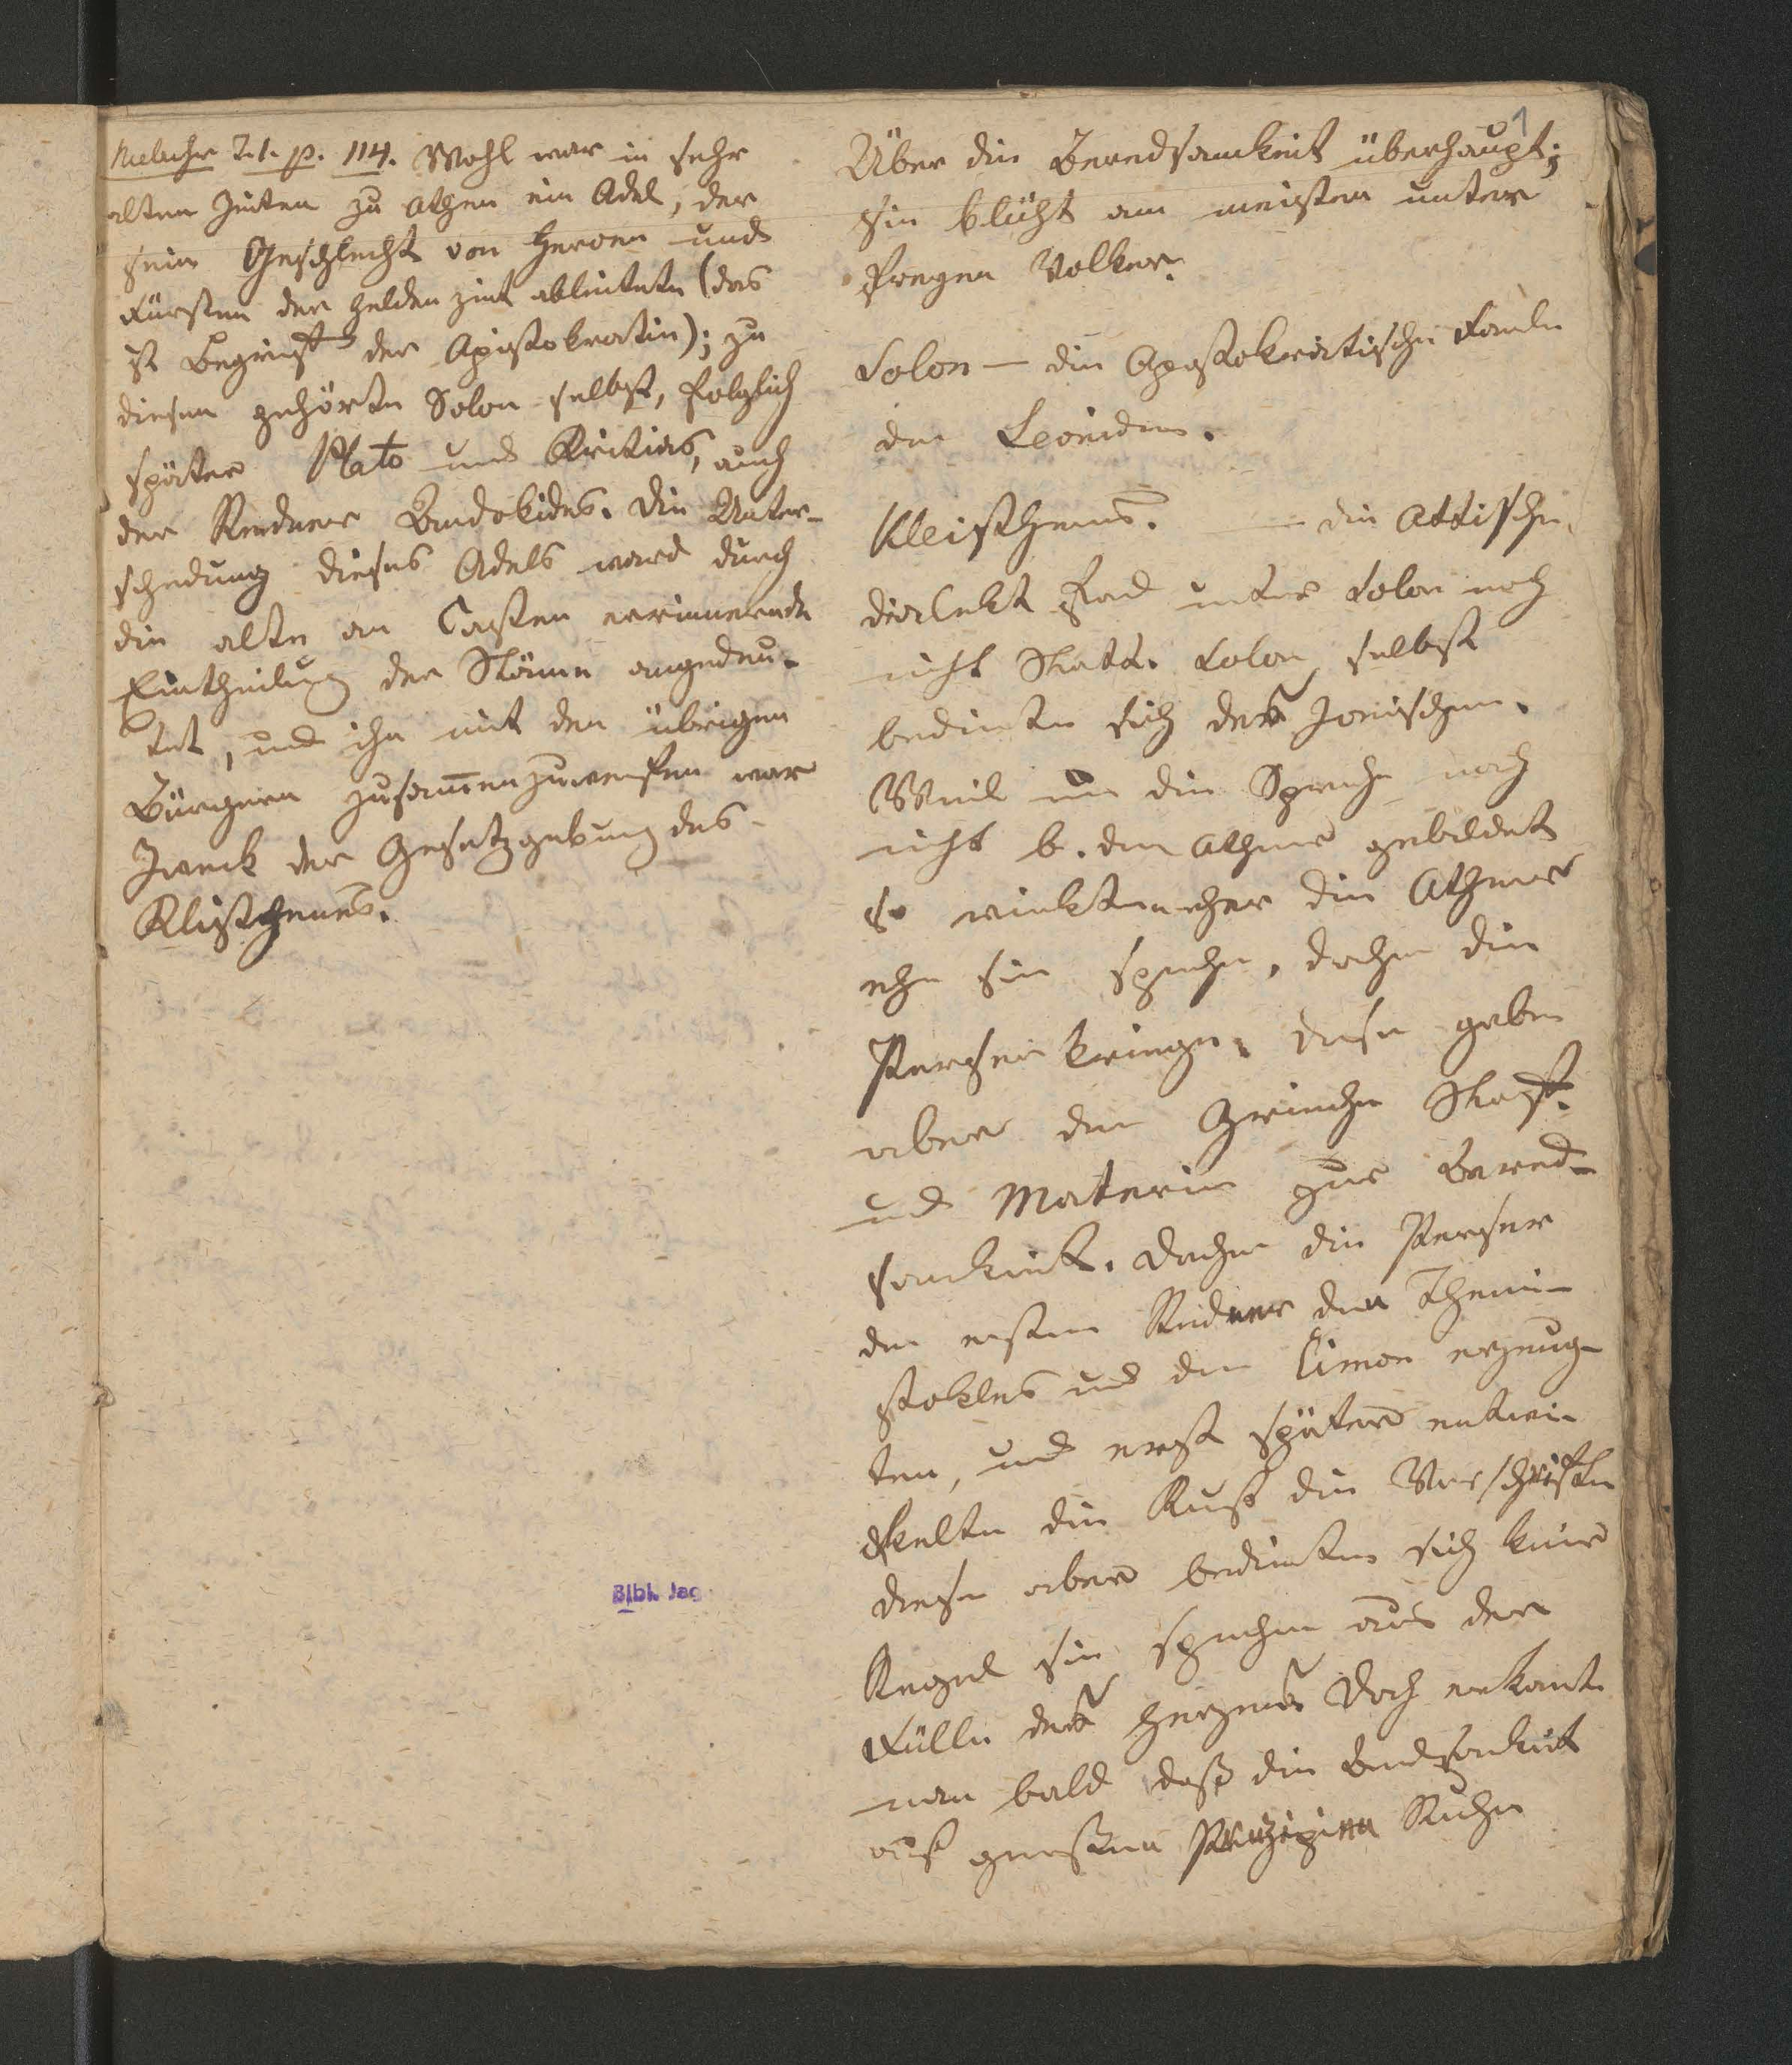 Niebuhr T. 1. p. 114. Wohl war in sehr
alten Zeiten zu Athen ein Adel, der
sein Geschlecht von Heroen und
Fürsten der Heldenzeit ableitete (das
ist Begriff der Aristokratie); zu
diesem gehörte Solon selbst, folglich
später Plato und Kritias, auch
der Redner Andokides. Die Unter-
scheidung dieses Adels ward durch
die alte an Casten erinnernde
Eintheilung der Stämme angedeu-
tet, und ihn mit den übrigen
Bürgern zusam̅enzuwerfen war
Zweck der Gesetzgebung des
Klisthenes.
1
Über die Beredsamkeit überhaupt;
sie blüht am meisten unter
freyen Völker.
Solon — die Aristokratische
den
Kleisthenes. — die Attische
Dialekt fand unter Solon noch
nicht Statt. Solon selbst
bediente sich des Jonischen.
Weil nun die Sprache noch
nicht b. den Athener gebildet
so die Athener
ehe sie sprechen, daher die
Perserkriege, diese gaben
aber den Griechen Stoff
und Materie zur Bered-
samkeit. Daher die Perser
den ersten Redner den Themi-
stokles und den Cimon erzeug-
ten, und erst später entwi-
ckelte die Kunst die Vorschriften
diese aber bedienten sich keine
Regel sie sprechen aus der
Fülle des Herzens doch erkante
man bald daß die Beredsamkeit
auf gewissen Prinzipien Ruhe
Bibl. Jag.